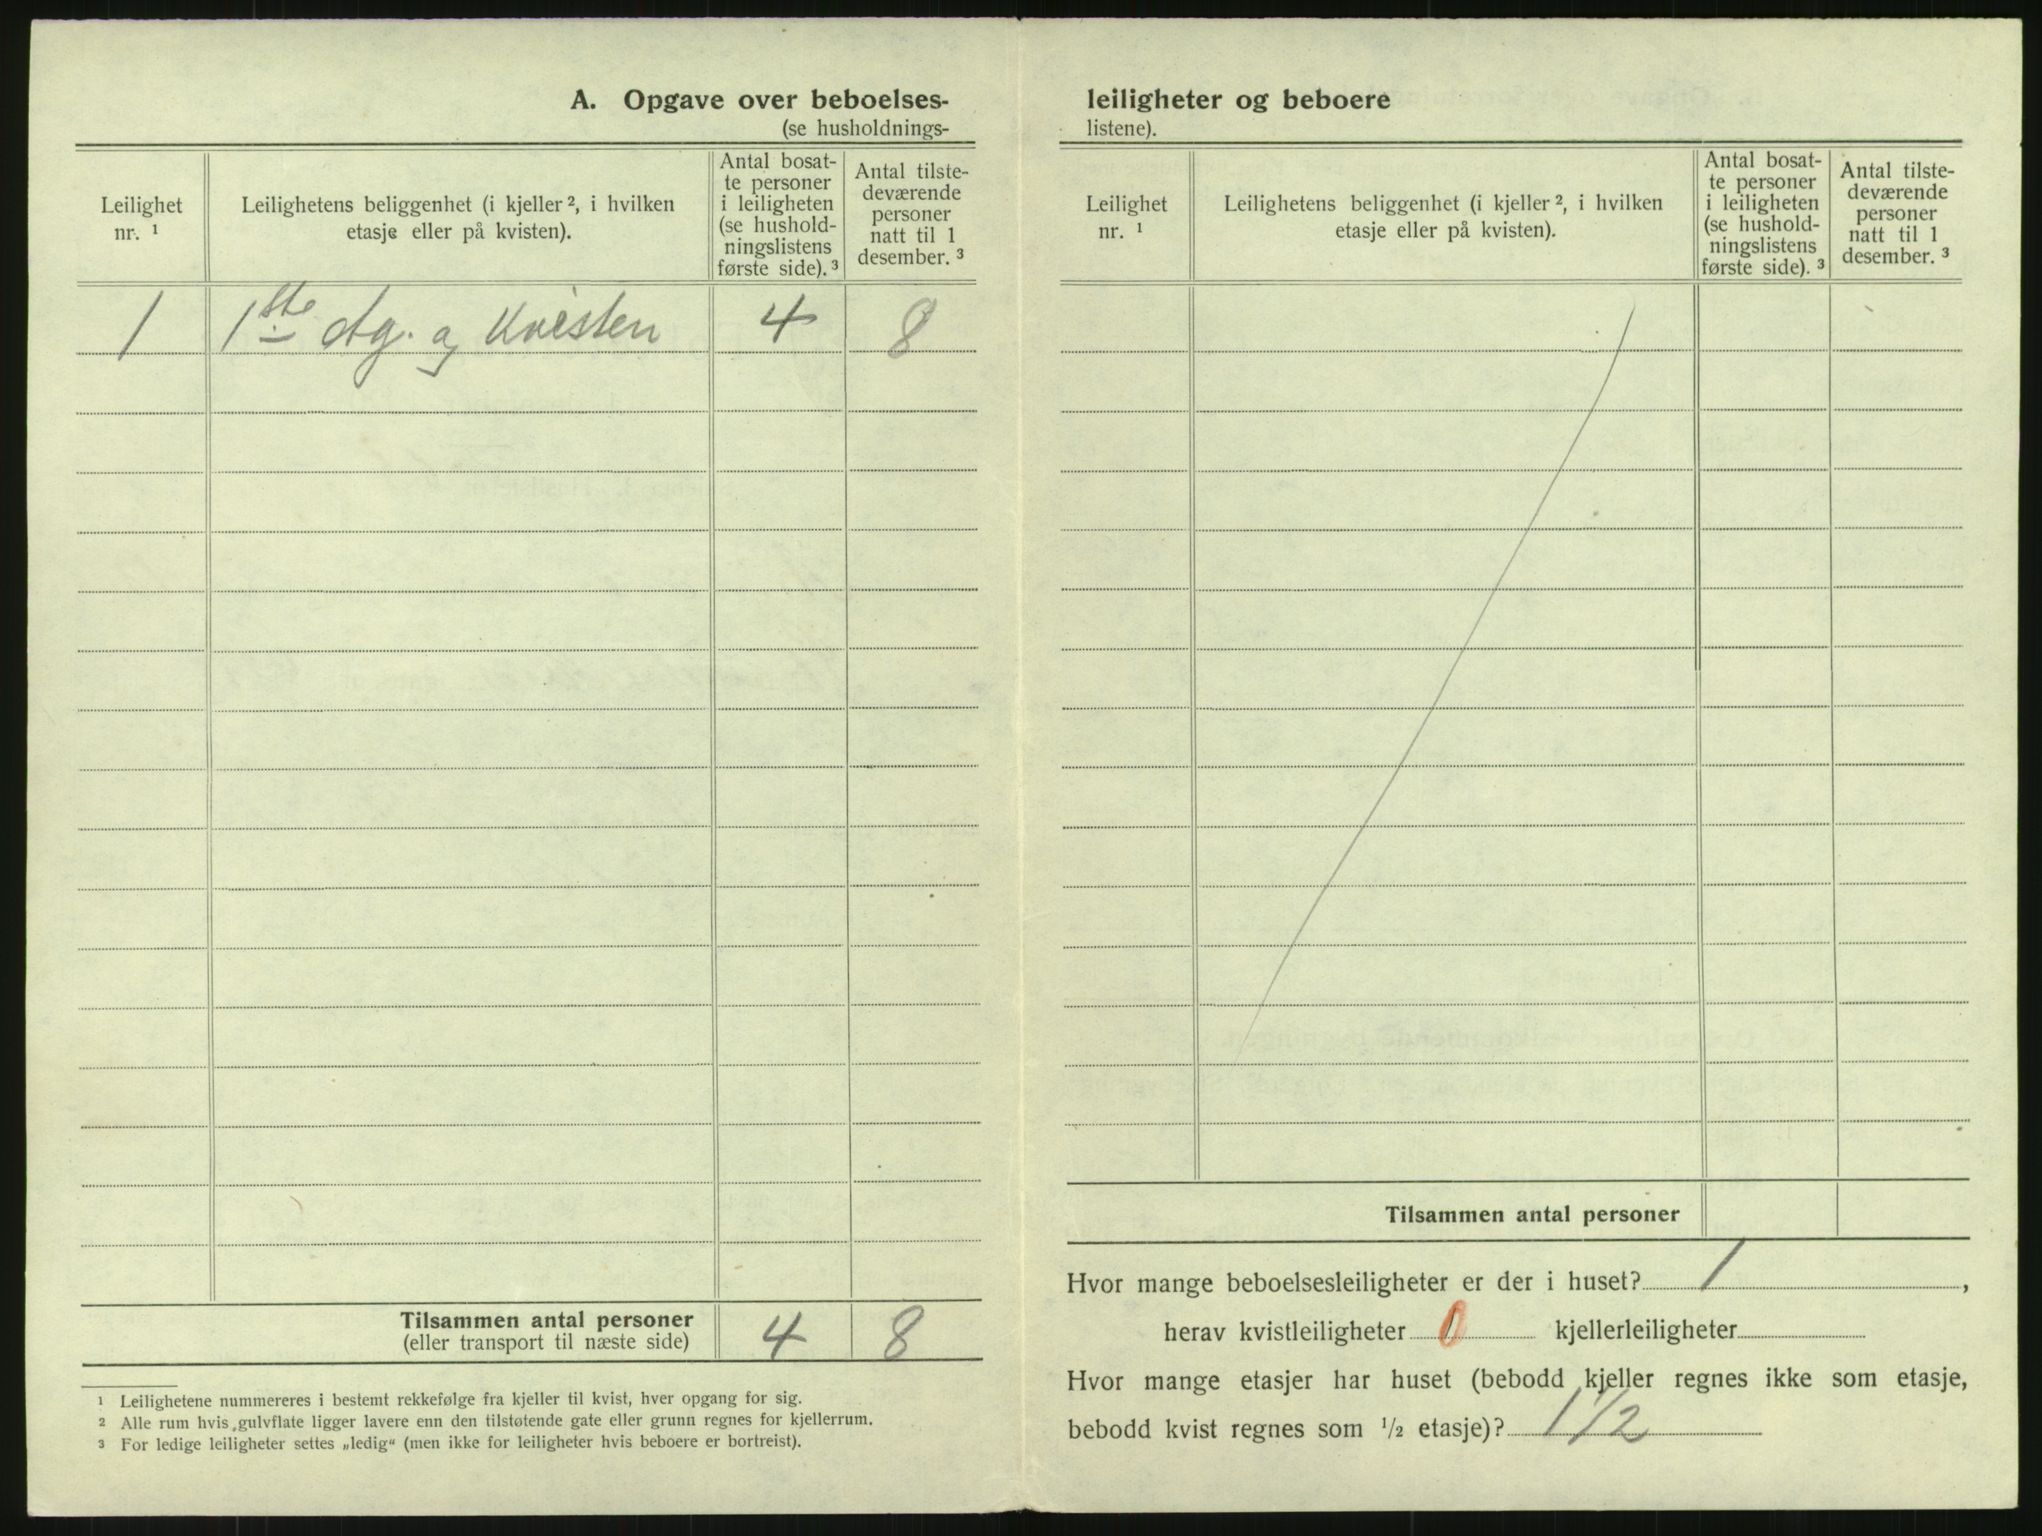 A. Opgave over beboelses-
(se husholdnings-
Leilighet
nr. ¹
Leilighetens beliggenhet (i kjeller ², i hvilken
etasje eller på kvisten).
Antal bosat-
te personer
i leiligheten
(se hushold-
ningslistens
første side). ³
Antal tilste-
deværende
personer
natt til 1
desember. ³
1 1ste etg. og Kvisten 4 8
Tilsammen antal personer
(eller transport til næste side) 4 8
¹ Leilighetene nummereres i bestemt rekkefølge fra kjeller til kvist, hver opgang for sig.
² Alle rum hvis gulvflate ligger lavere enn den tilstøtende gate eller grunn regnes for kjellerrum.
³ For ledige leiligheter settes „ledig“ (men ikke for leiligheter hvis beboere er bortreist).
leiligheter og beboere
listene).
Leilighet
nr. ¹
Leilighetens beliggenhet (i kjeller ², i hvilken
etasje eller på kvisten).
Antal bosat-
te personer
i leiligheten
(se hushold-
ningslistens
første side). ³
Antal tilste-
deværende
personer
natt til 1
desember. ³
Tilsammen antal personer
Hvor mange beboelsesleiligheter er der i huset? 1,
herav kvistleiligheter 0 kjellerleiligheter
Hvor mange etasjer har huset (bebodd kjeller regnes ikke som etasje,
bebodd kvist regnes som ½ etasje)? 1½